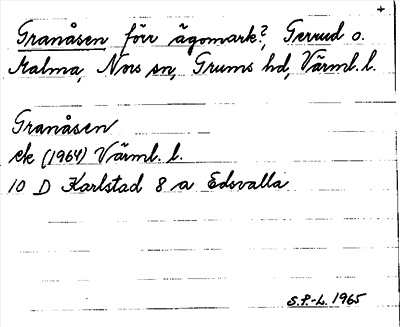 +
Granåsen förr ägomark?, Gerrud o.
Malma, Nors sn, Grums hd, Värml. l.
Granåsen
ek (1964) Värml. l.
10 D Karlstad 8 a Edsvalla
S.F.-L. 1965